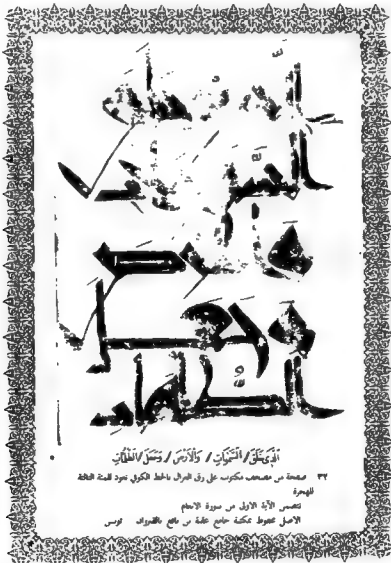 الذى خلق
السموت
والارض
وجعل
الظلمات
اَلَّذِي خَلَقَ / اَلسَّمٰوَاتِ / وَالْأَرْضَ / وَجَعَلَ / الظُّلُمَاتِ
٣٢ صفحة من مصحف مكتوب على رق الغزال بالخط الكوفي تعود للمئة الثالثة
للهجرة
تتضمن الآية الاولى من سورة الانعام
الاصل محفوظ بمكتبة جامع عقبة بن نافع بالقيروان تونس